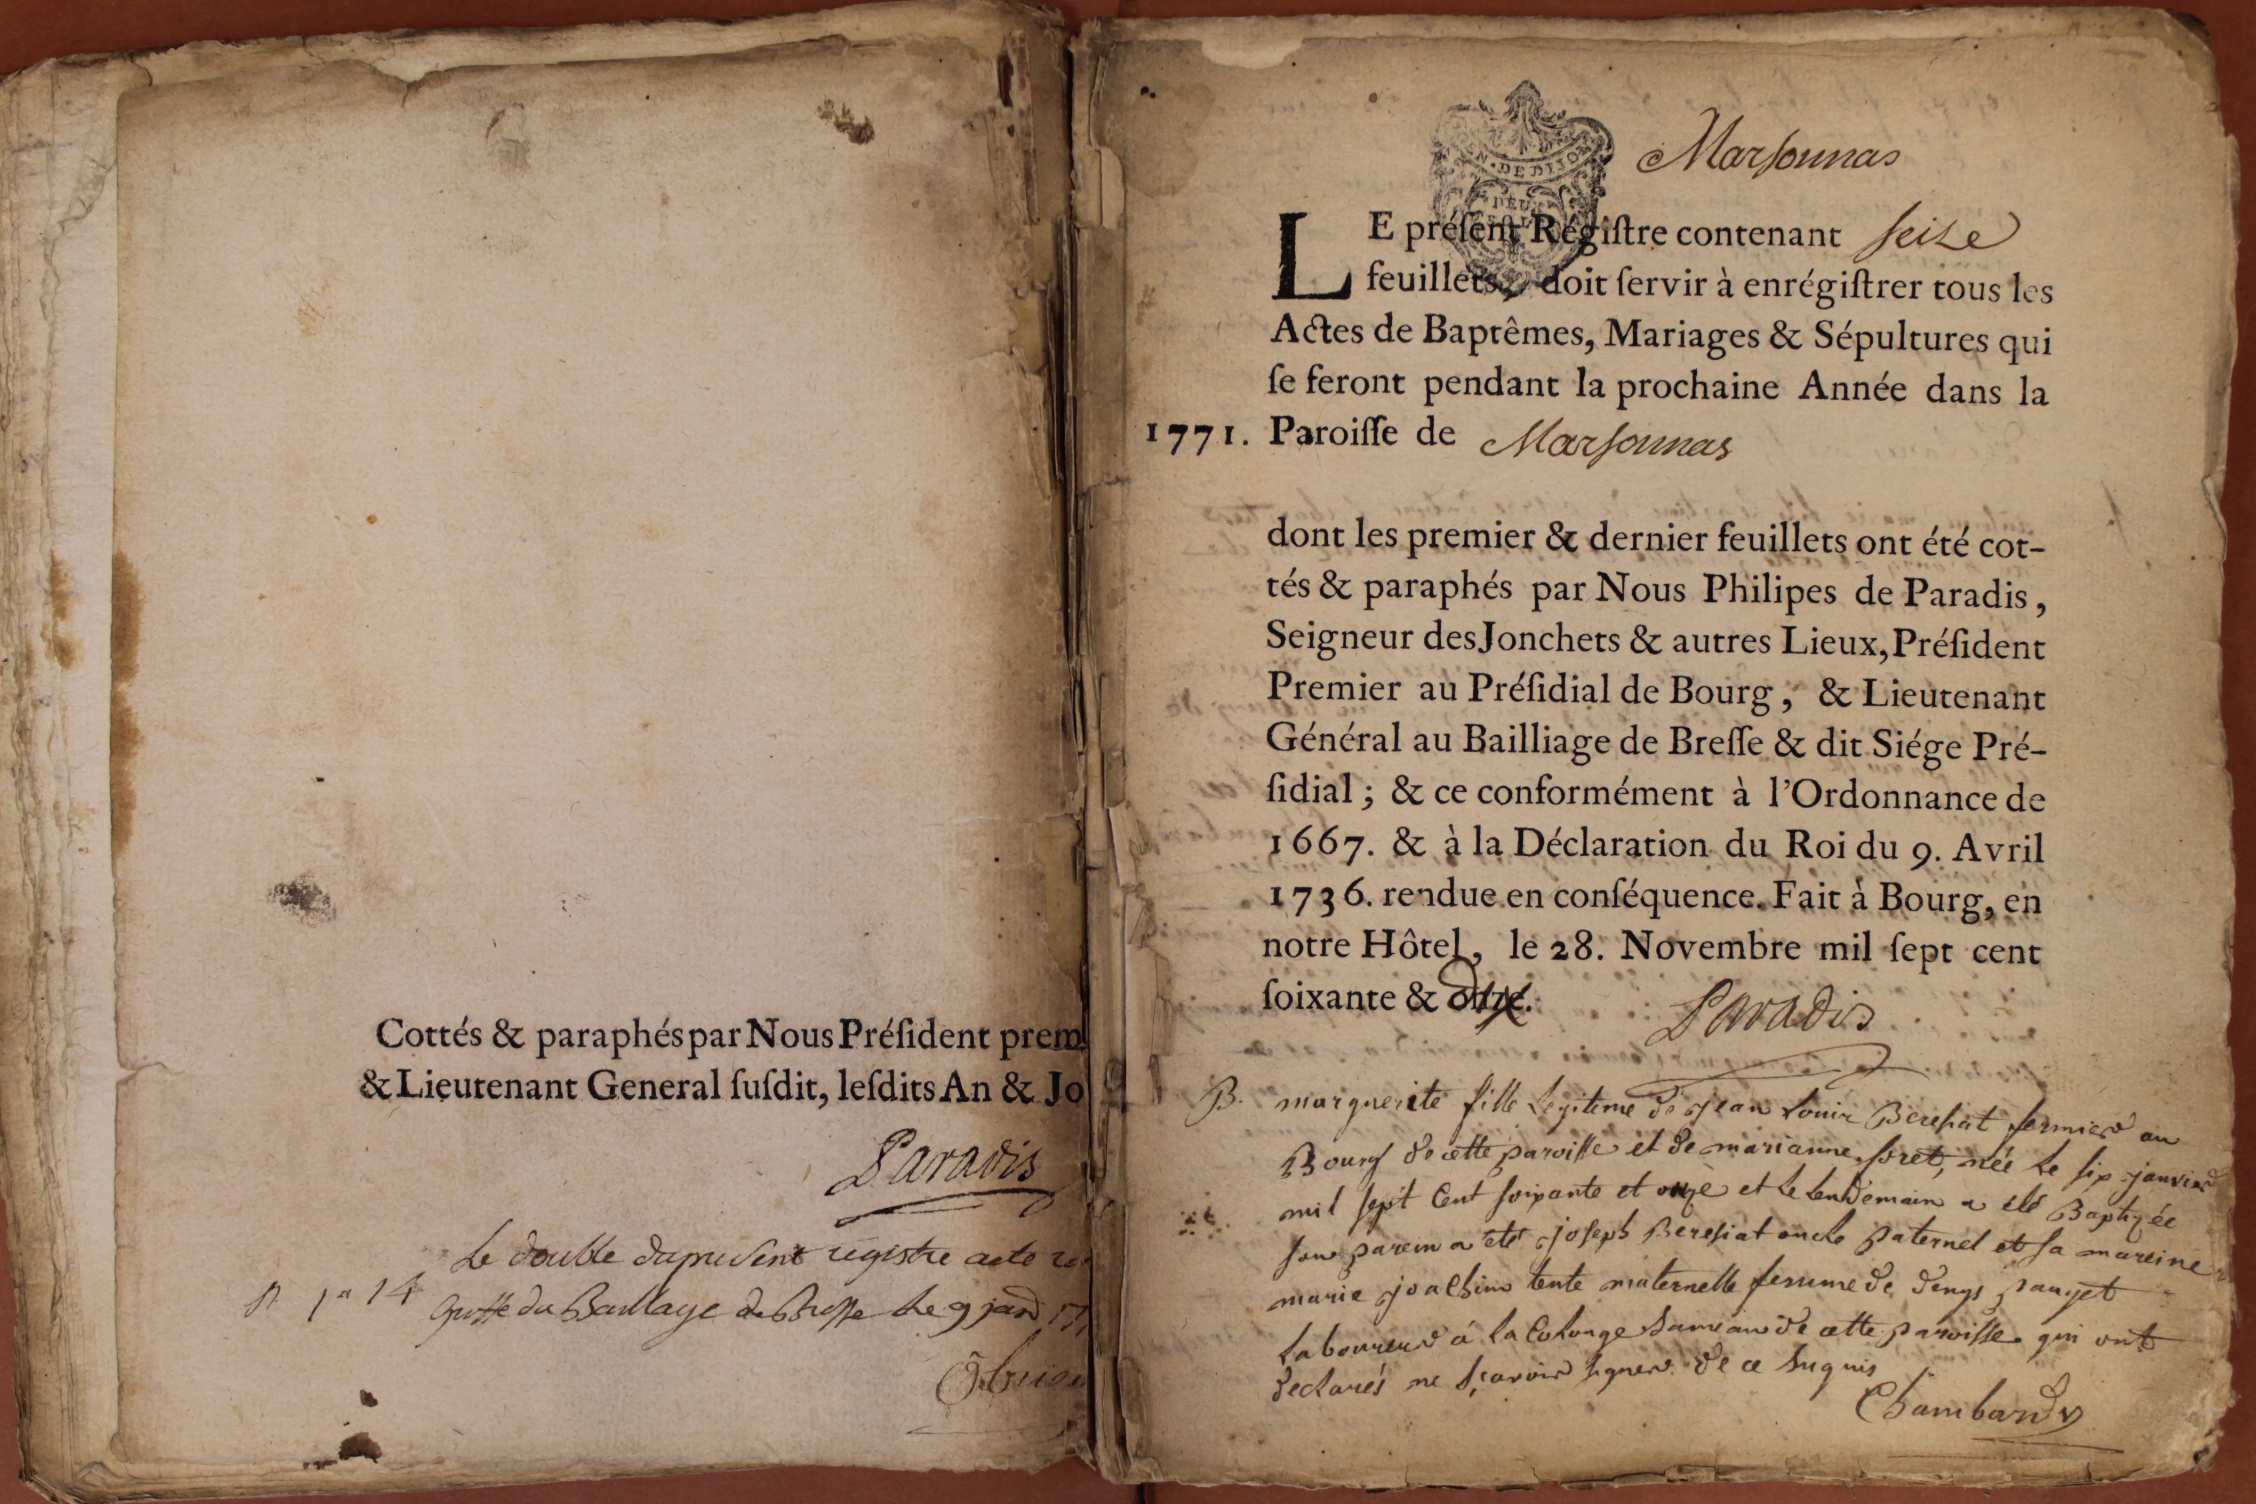 Cottés & paraphés par Nous Préſident prem
& Lieutenant General ſuſdit, leſdits An & Jo
Paradis
Le double du preſent registre acte
Greffe du Bailliage de Bresse le 9 janv
GEN. DE DIJON
DEUX
Marſonnas
LE préſent Régiſtre contenant ſeize
feuillets, doit ſervir à enrégiſtrer tous les
Actes de Baptêmes, Mariages & Sépultures qui
ſe feront pendant la prochaine Année dans la
1771. Paroiſſe de Marſonnas
dont les premier & dernier feuillets ont été cot-
tés & paraphés par Nous Philipes de Paradis,
Seigneur des Jonchets & autres Lieux, Préſident
Premier au Préſidial de Bourg, & Lieutenant
Général au Bailliage de Breſſe & dit Siége Pré-
ſidial; & ce conformément à l'Ordonnance de
1667. & à la Déclaration du Roi du 9. Avril
1736. rendue en conſéquence. Fait à Bourg, en
notre Hôtel, le 28. Novembre mil ſept cent
ſoixante & dix.
Paradis
B. marguerite fille Legitime de Jean Louis Bereſiat fermier au
Bourg de cette paroiſſe et de marianne foret, née le ſix janvier
mil ſept Cent ſoixante et onze et le lendemain a eté Baptizée
ſon parein a eté joſeph Bereſiat oncle paternel et ſa mareine
marie joachim tente maternelle femme de denys pauget
Laboureur á la Colonge hameau de cette paroiſſe qui ont
declarés ne ſçavoir ſigner de ce Enquis
Chambard